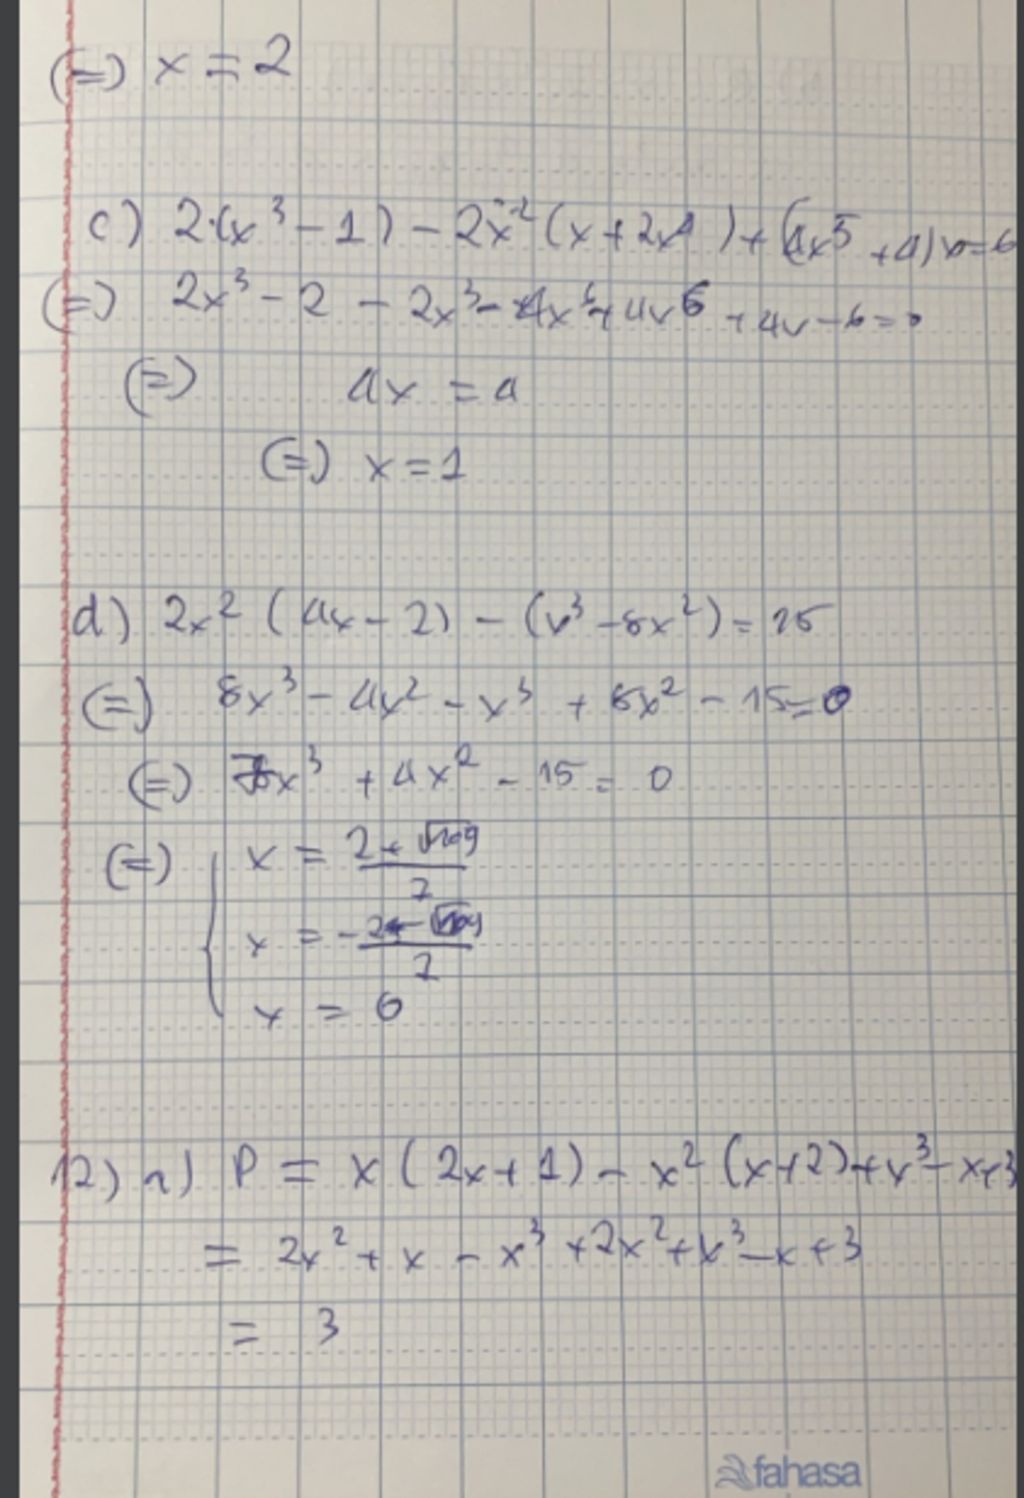 (=) x = 2
c) 2.(x³ - 1) - 2x²(x + 2x⁴) + (4x⁵ + 4)x = 6
(=) 2x³ - 2 - 2x³ - 4x⁶ + 4x⁶ + 4x - 6 = 0
(=) 4x = 4
(=) x = 1
d) 2x² (4x - 2) - (x³ - 8x²) = 15
(=) 8x³ - 4x² - x³ + 8x² - 15 = 0
(=) 7x³ + 4x² - 15 = 0
(=) x =
x =
x = 0
12) a) P = x (2x + 1) - x² (x + 2) + x³ - x + 3
= 2x² + x - x³ + 2x² + x³ - x + 3
= 3
fahasa